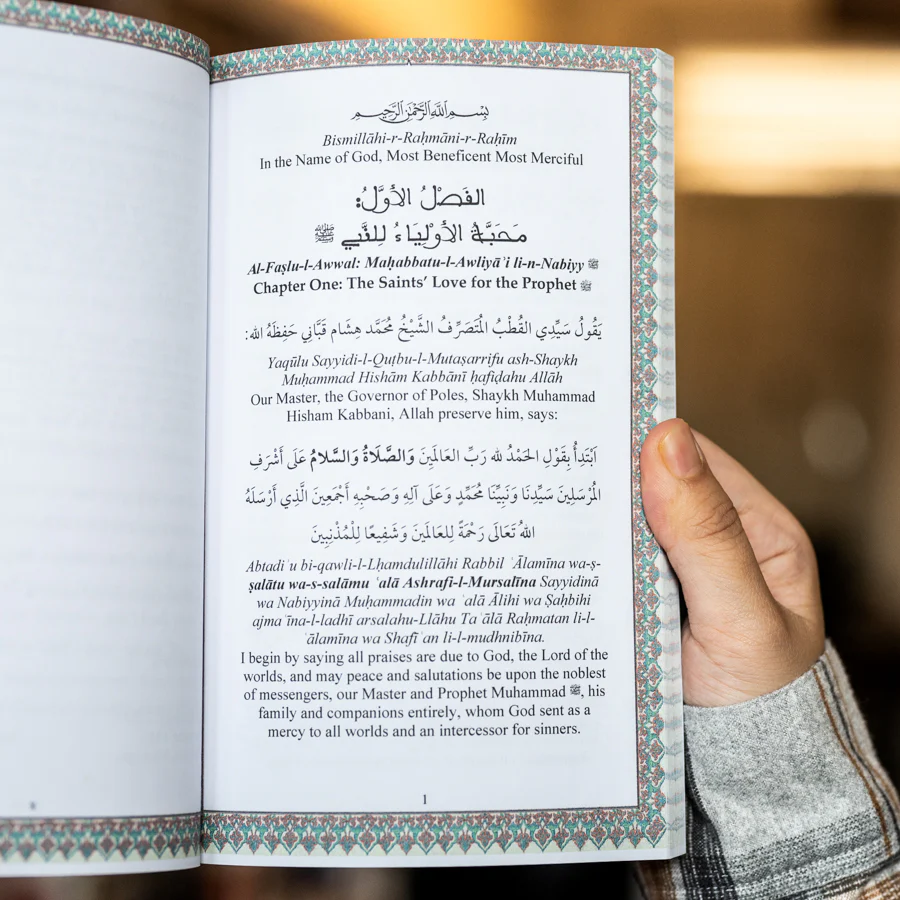 بِسْمِ اللهِ الرَّحْمٰنِ الرَّحِيمِ
Bismillāhi-r-Raḥmāni-r-Raḥīm
In the Name of God, Most Beneficent Most Merciful
الفَصْلُ الأَوَّلُ:
مَحَبَّةُ الأَوْلِيَاءُ لِلنَّبِي ﷺ
Al-Faṣlu-l-Awwal: Maḥabbatu-l-Awliyāʾi li-n-Nabiyy ﷺ
Chapter One: The Saints’ Love for the Prophet ﷺ
يَقُولُ سَيِّدِي القُطْبُ المُتَصَرِّفُ الشَّيْخُ مُحَمَّد هِشَام قَبَّانِي حَفِظَهُ الله:
Yaqūlu Sayyidi-l-Quṭbu-l-Mutaṣarrifu ash-Shaykh
Muḥammad Hishām Kabbānī ḥafiḍahu Allāh
Our Master, the Governor of Poles, Shaykh Muhammad
Hisham Kabbani, Allah preserve him, says:
اَبْتَدِأُ بِقَوْلِ الحَمْدُ لله رَبِّ العَالَمِينَ وَالصَّلَاةُ وَالسَّلامُ عَلَى أَشْرَفِ
المُرْسَلِينَ سَيِّدِنَا وَنَبِيِّنَا مُحَمَّدٍ وَعَلَى آلِهِ وَصَحْبِهِ أَجْمَعِينَ الَّذِي أَرْسَلَهُ
اللهُ تَعَالَى رَحْمَةً لِلعَالَمِينَ وَشَفِيعًا لِلْمُذْنِبِينَ
Abtadiʾu bi-qawli-l-Lḥamdulillāhi Rabbil ʿĀlamīna wa-ṣ-
ṣalātu wa-s-salāmu ʿalā Ashrafi-l-Mursalīna Sayyidinā
wa Nabiyyinā Muḥammadin wa ʿalā Ālihi wa Ṣaḥbihi
ajmaʿīna-l-ladhī arsalahu-Llāhu Taʿālā Raḥmatan li-l-
ʿālamīna wa Shafīʿan li-l-mudhnibīna.
I begin by saying all praises are due to God, the Lord of the
worlds, and may peace and salutations be upon the noblest
of messengers, our Master and Prophet Muhammad ﷺ, his
family and companions entirely, whom God sent as a
mercy to all worlds and an intercessor for sinners.
1